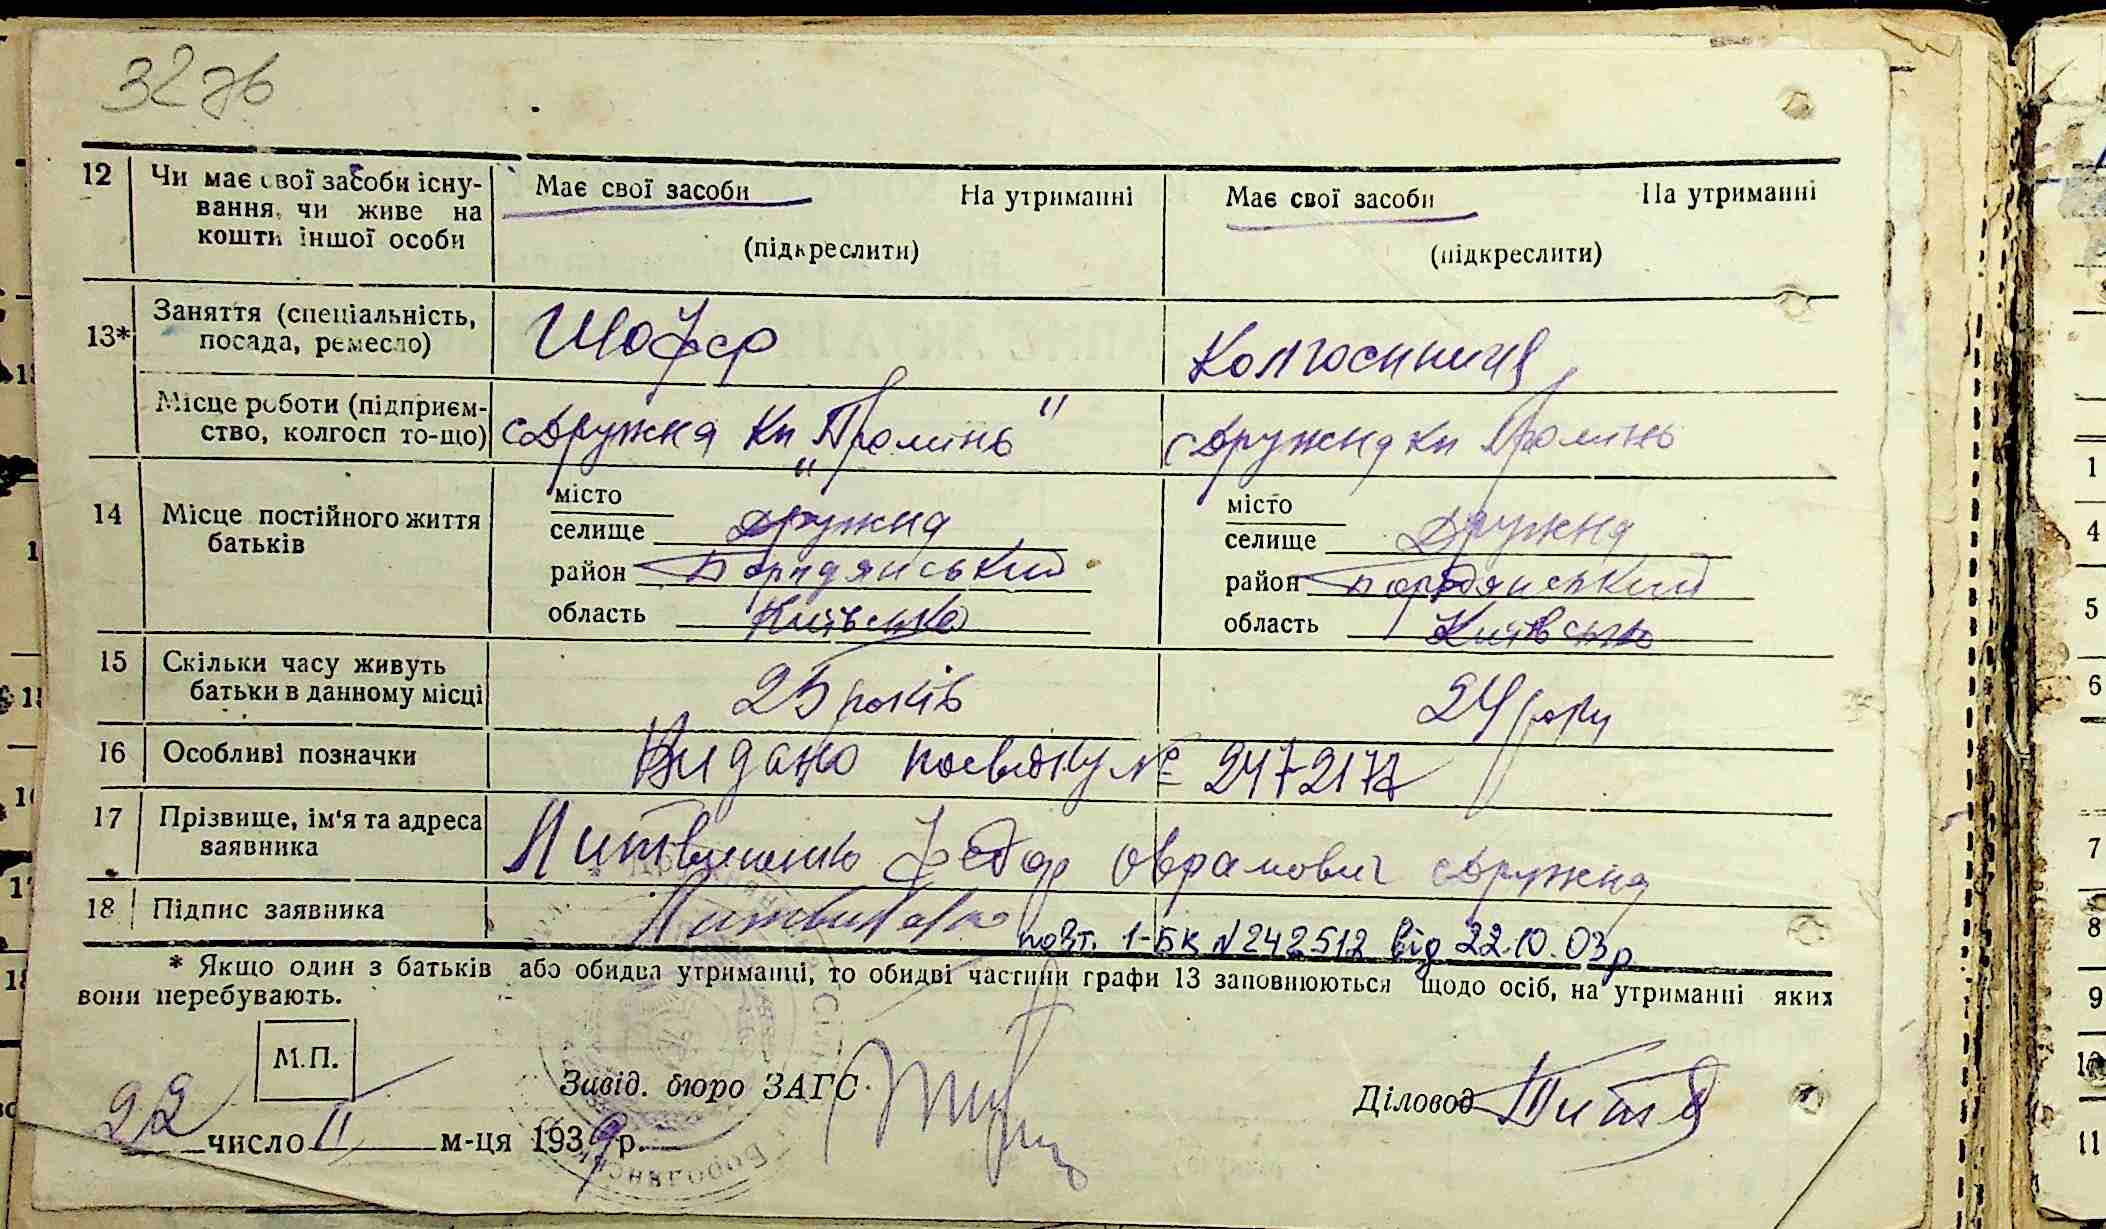 32 зв
12 Чи має свої засоби існу- Має свої засоби На утриманні Має свої засоби На утриманні
вання, чи живе на
кошти іншої особи (підкреслити) (підкреслити)
13* Заняття (спеціальність, Шофер Колгоспниця
посада, ремесло)
Місце роботи (підприєм- с Дружня Кп "Промінь" с Дружня Кп Промінь
ство, колгосп то-що)
14 Місце постійного життя місто місто
батьків селище Дружня селище Дружня
район Бородянський район Бородянський
область Київська область Київська
15 Скільки часу живуть 25 років 24 роки
батьки в данному місці
16 Особливі позначки Видано посвідку № 2472172
17 Прізвище, ім'я та адреса Литвиненко Федор Оврамович с Дружня
заявника
18 Підпис заявника Литвиненко
повт. 1-БК №242512 від 22.10.03р
* Якщо один з батьків або обидва утриманці, то обидві частини графи 13 заповнюються щодо осіб, на утриманні яких
вони перебувають.
М.П.
Завід. бюро ЗАГС Діловод
22 число II м-ця 1939 р.